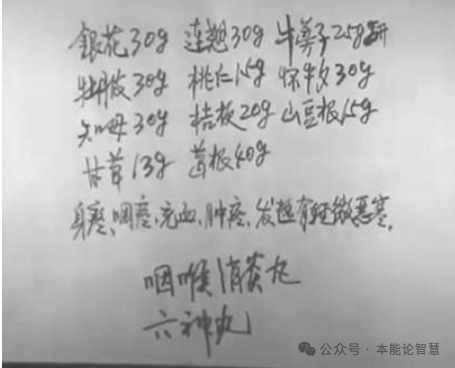 銀花30g 连翘30g 牛蒡子25g研
牡丹皮30g 桃仁15g 怀牛夕30g
知母30g 桔梗20g 山豆根15g
甘草13g 葛根40g
身疼、咽疼、充血、肿疼、发热有轻微恶寒。
咽喉消炎丸
六神丸
公众号·本能论智慧